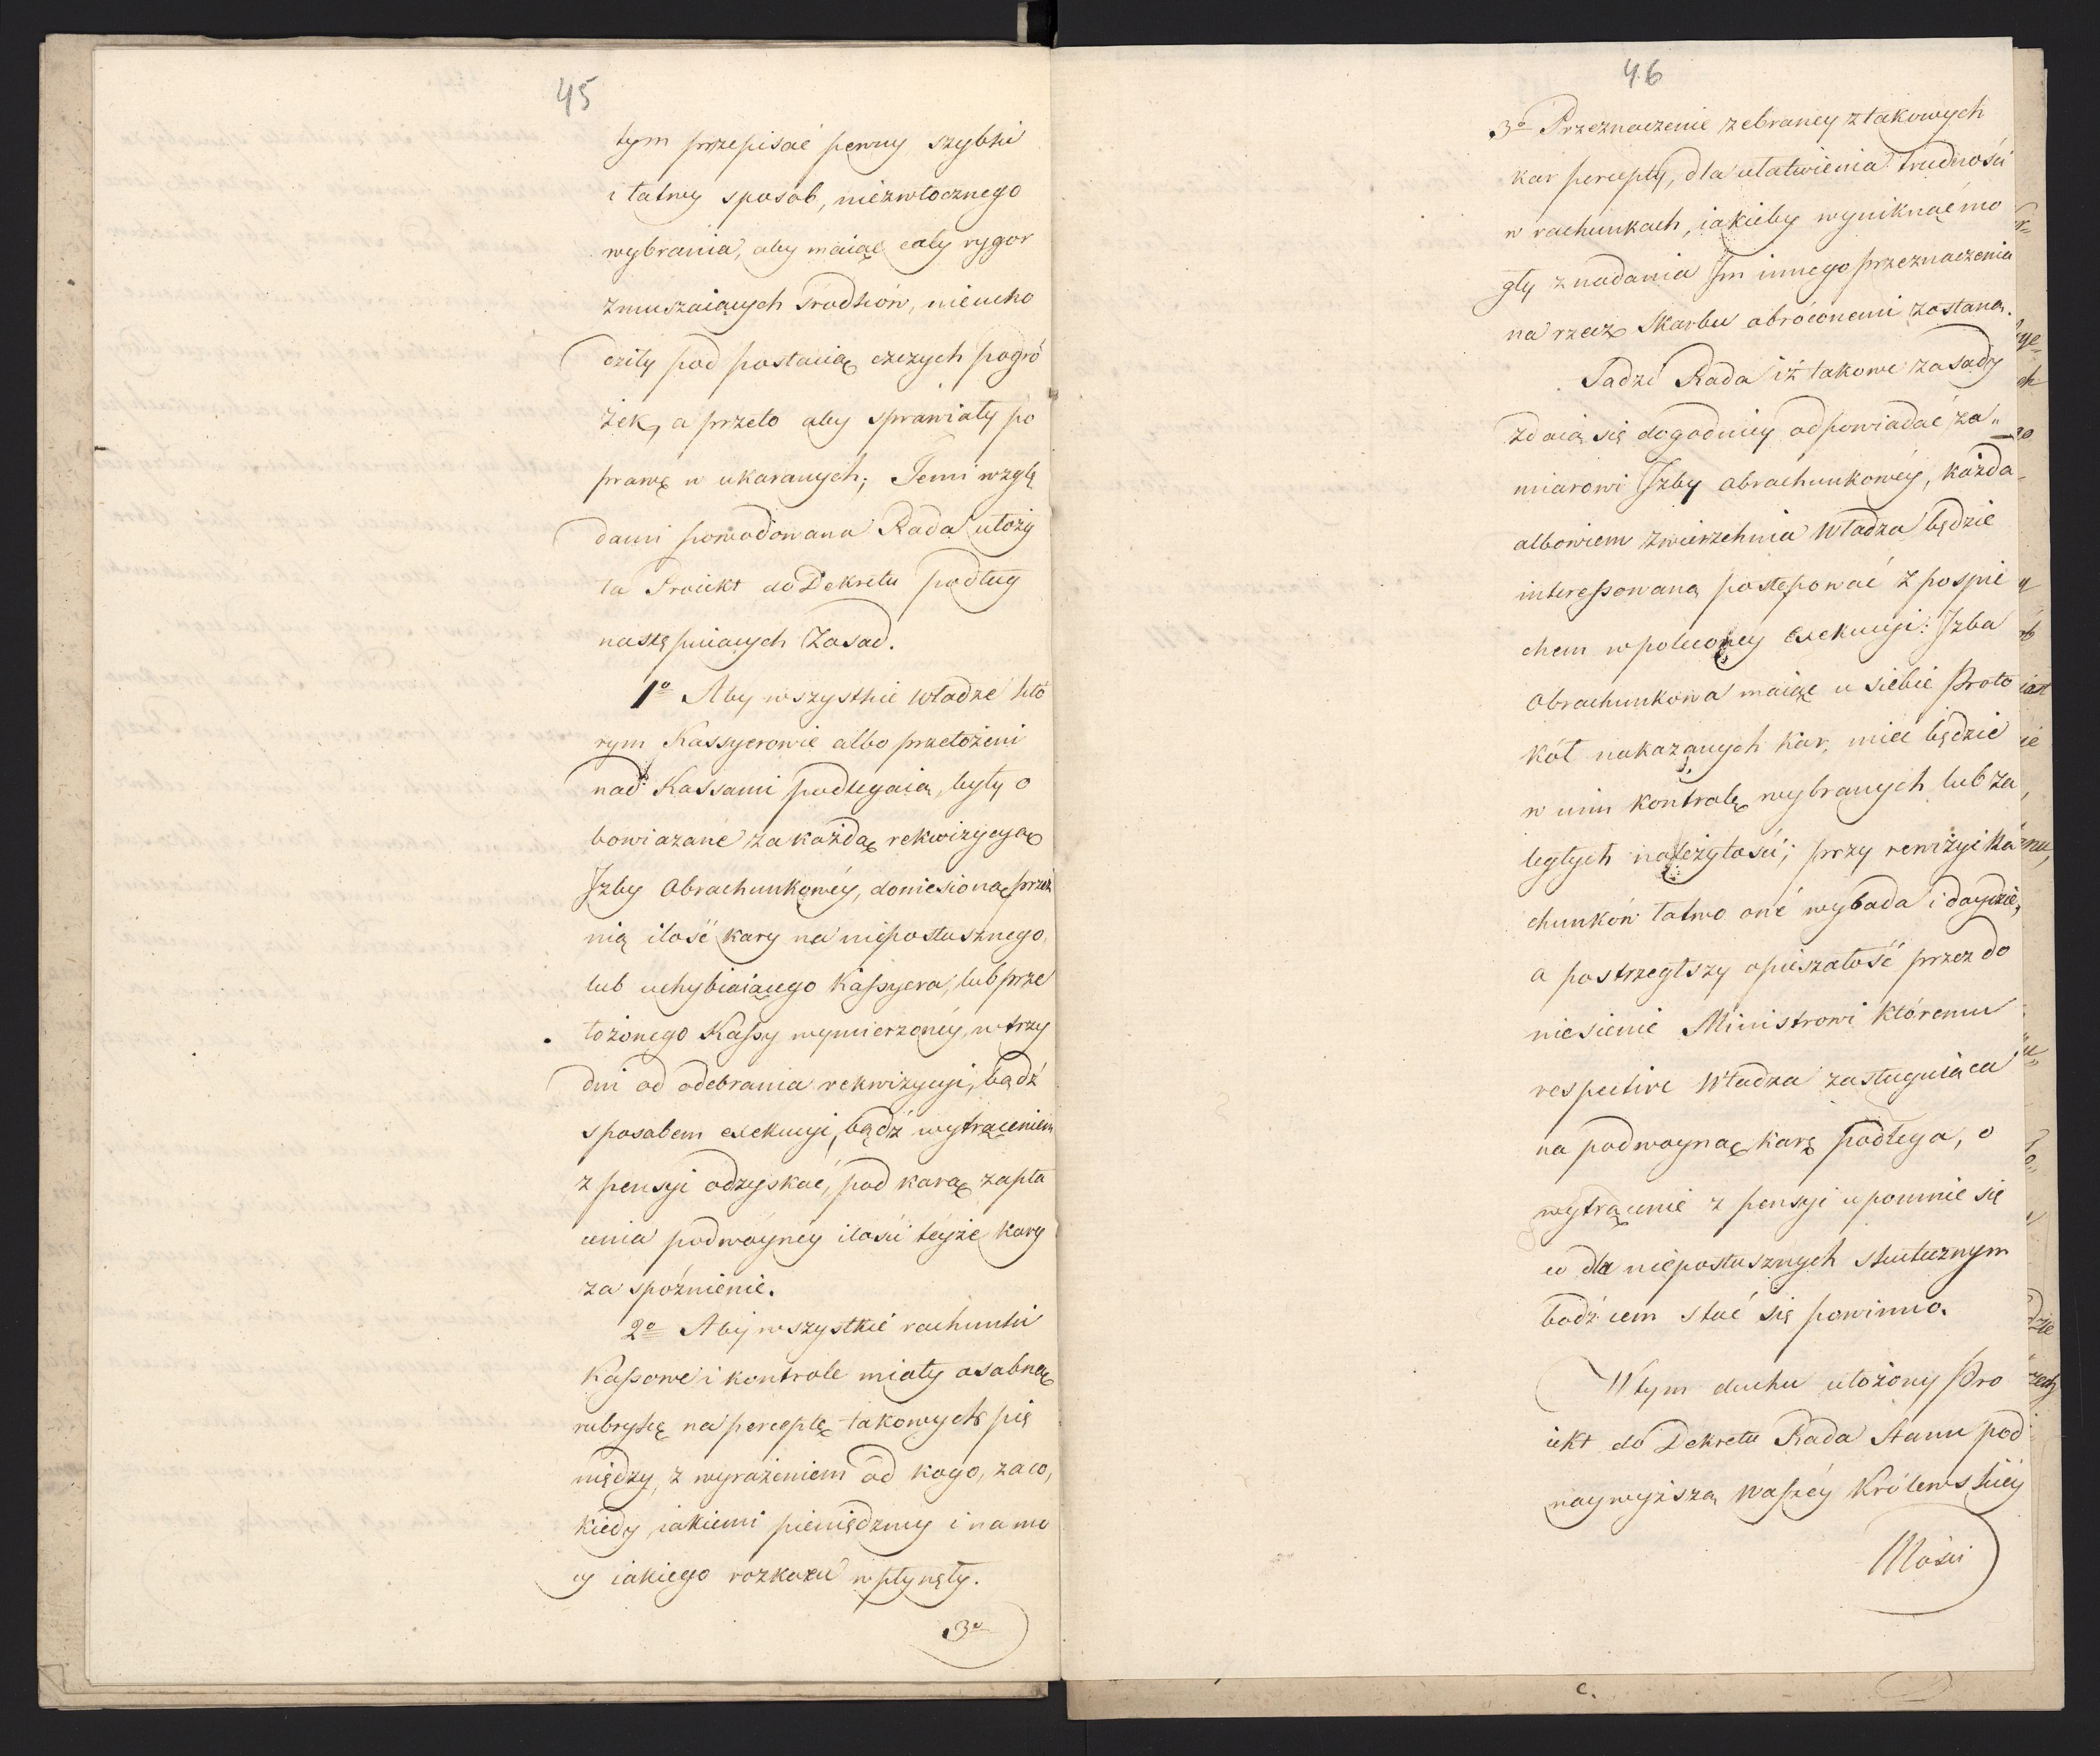 45
tym przepisać pewny szybki
i łatwy sposob, niezwłocznego
wybrania, aby maiąc cały rygor
zmuszaiących srodków, nieucho
dziły pod postacią czczych pogró
żek, a przeto aby sprawiały po
prawę w ukaranych; Temi wzglę
dami powodowana Rada ułoży
ła Proiekt do Dekretu podług
następuiących Zasad.
1o Aby wszystkie Władze któ
rym Kassyerowie albo przełożeni
nad Kassami podlegaią, były o
bowiazane za każdą rekwizycyą
Izby Obrachunkowéy, doniesioną przez
nią ilość kary na nieposłusznego
lub uchybiaiącego Kassyera, lub prze
łożonego Kassy wymierzonéy, w trzy
dni od odebrania rekwizycyi, bądź
sposobem exekucyi, bądź wytrąceniem
z pensyi odzyskać, pod karą zapła
cenia podwóyney ilości teyże kary
za spóźnienie.
2o Aby wszystkie rachunki
Kassowe i kontrole miały osobną
rubrykę na perceptę takowych pie
niędzy, z wyrażeniem od kogo, za co,
kiedy, iakiemi pieniędzmy i na mo
cy iakiego rozkazu wpłynęły.
3o
46
3o Przeznaczenie zebraney z takowych
kar percepty, dla ułatwienia trudności
w rachunkach, iakieby wyniknąć mo
gły z nadania Im innego przeznaczenia
na rzecz Skarbu obróconemi zostaną.
Sądzi Rada iż takowe zasady
zdaią się dogodniey odpowiadać za„
miarowi Izby Obrachunkowéy, każda
albowiem zwierzchnia Władza będzie
interessowaną postępować z pospie
chem w poleconey exekucyi: Izba
Obrachunkowa maiąc u siebie Proto
kół nakazanych kar, mieć będzie
w nim kontrolę wybranych lub za
ległych należytości; przy rewizyi Ra
chunków łatwo one wybada i doydzie,
a postrzegłszy opieszałość przez do
niesienie Ministrowi któremu
respective Władza zasługuiąca
na podwoyną karę podlega, o
wytrącenie z pensyi upomnie się
co dla nieposłusznych skutecznym
bodźcem stać się powinno.
W tym duchu ułożony Pro
iekt do Dekretu Rada Stanu pod
naywyższą Waszéy Królewskiéy
Mości
c.